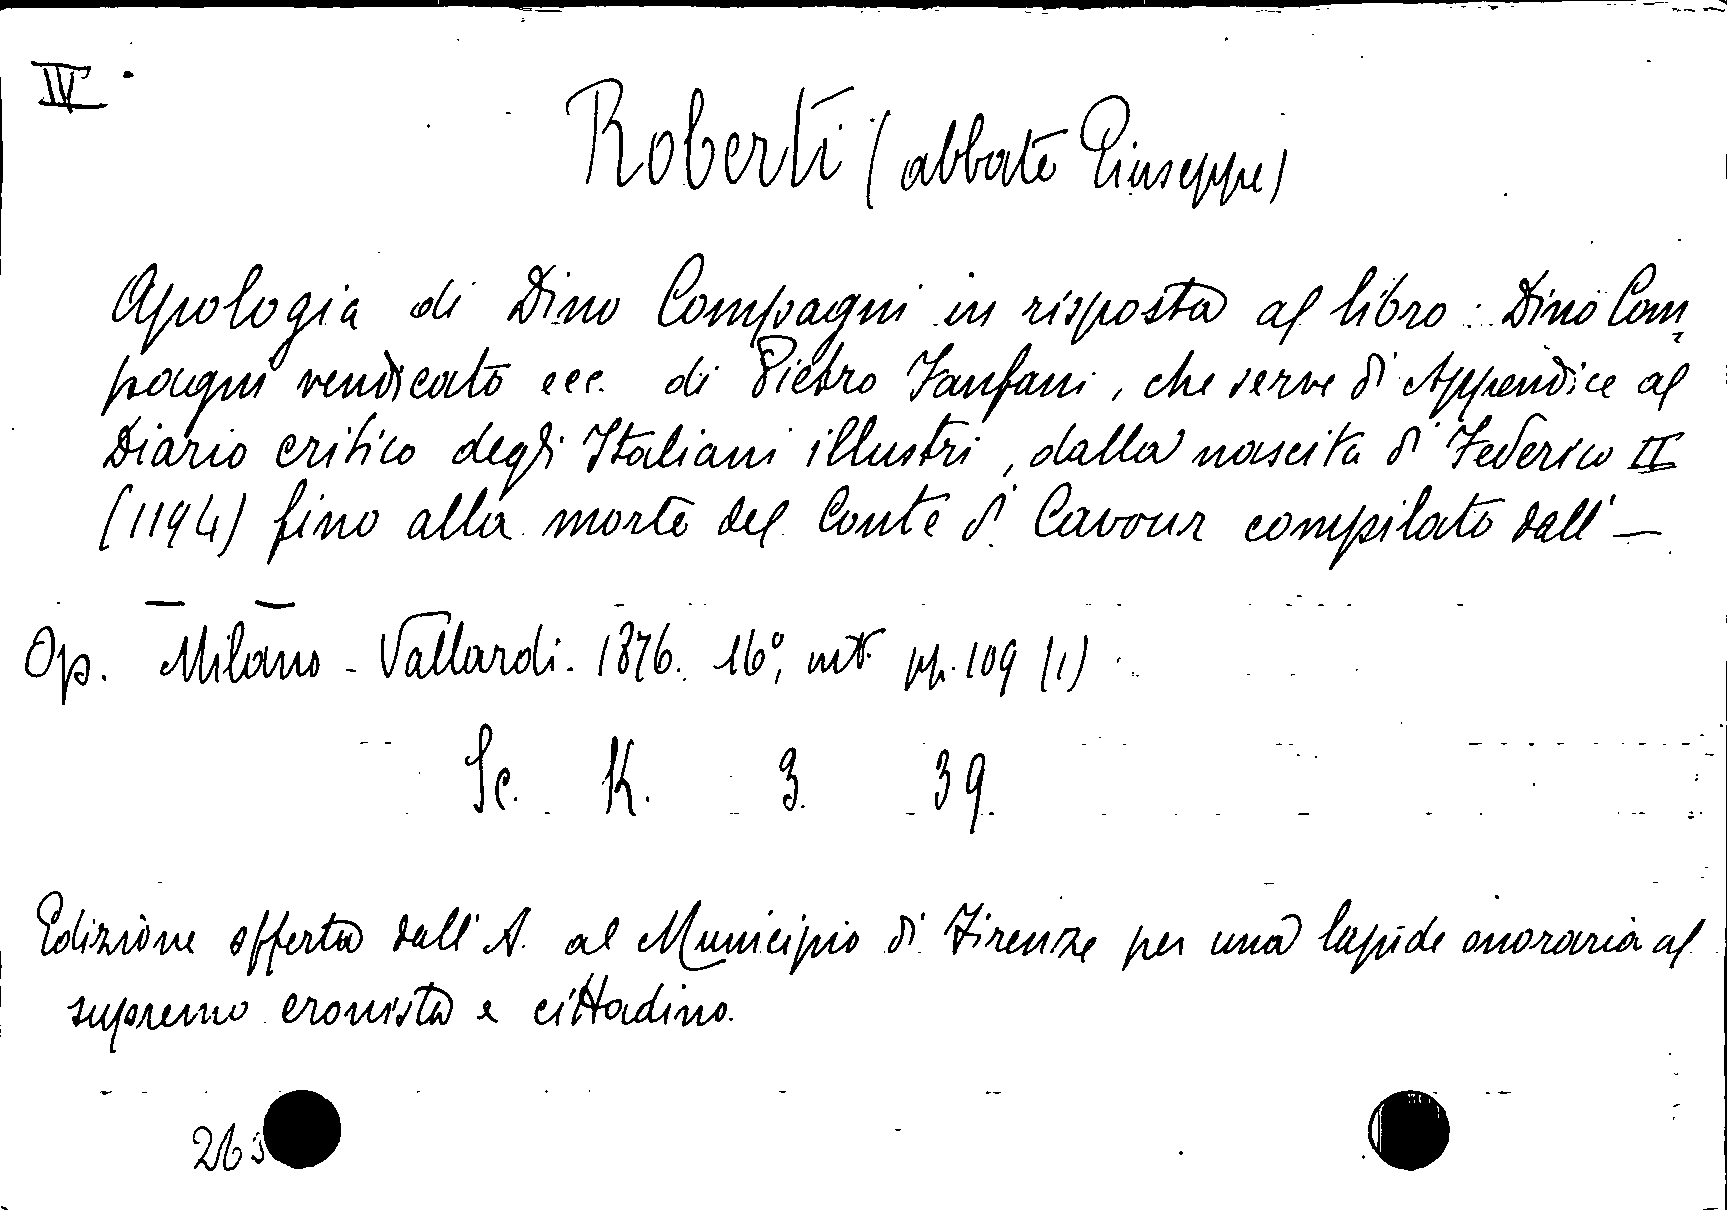 IV
Roberti (abbate Giuseppe)
Apologia di Dino Compagni in risposta al libro: Dino Com-
pagni vendicato ecc. di Pietro Fanfani, che serve di Appendice al
Diario critico degli Italiani illustri, dalla nascita di Federico II
(1194) fino alla morte del Conte di Cavour compilato dall' —
Op. Milano - Vallardi - 1876. 16°, pp. 109 (1)
Sc. K. 3. 39.
Edizione offerta dall' A. al Municipio di Firenze per una lapide onoraria al
supremo cronista e cittadino.
263